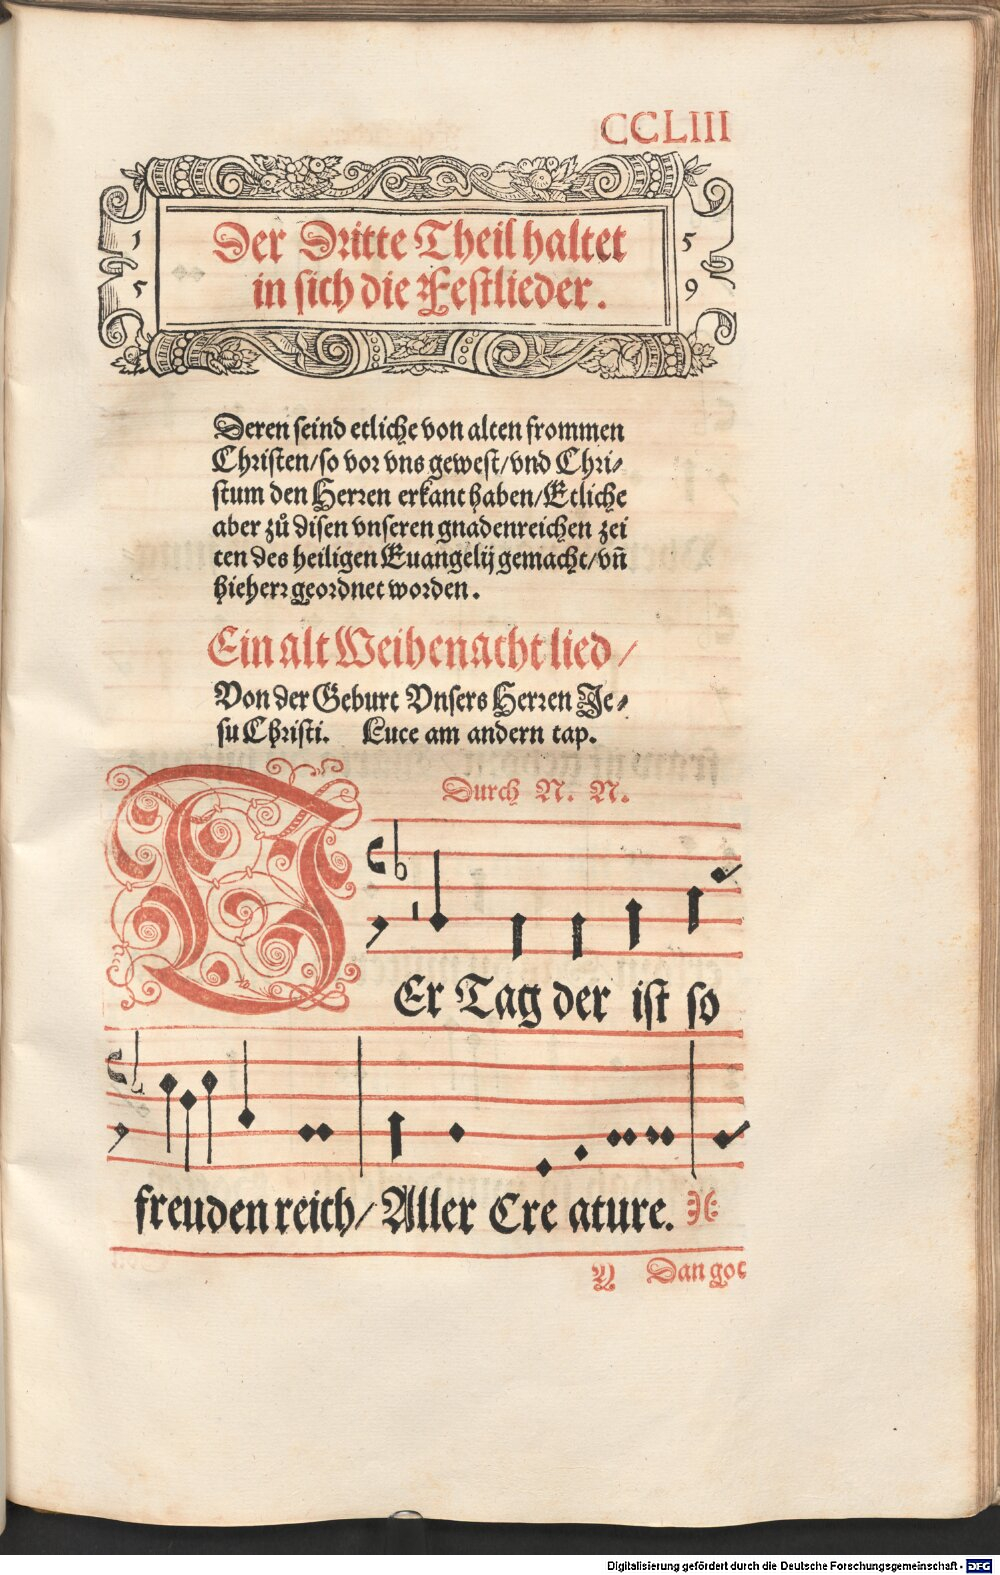 CCLIII
1 5
5 9
Der Dritte Theil haltet
in sich die Festlieder.
Deren seind etliche von alten frommen
Christen/so vor vns gewest/vnd Chri⸗
stum den Herren erkant haben/Etliche
aber zů disen vnseren gnadenreichen zei
ten des heiligen Euangelij gemacht/vñ
hieherr geordnet worden.
Ein alt Weihenacht lied/
Von der Geburt Vnsers Herren Je⸗
su Christi. Luce am andern cap.
Durch N. N.
DEr Tag der ist so
freuden reich/Aller Cre ature.
Y Dan got
Digitalisierung gefördert durch die Deutsche Forschungsgemeinschaft - DFG